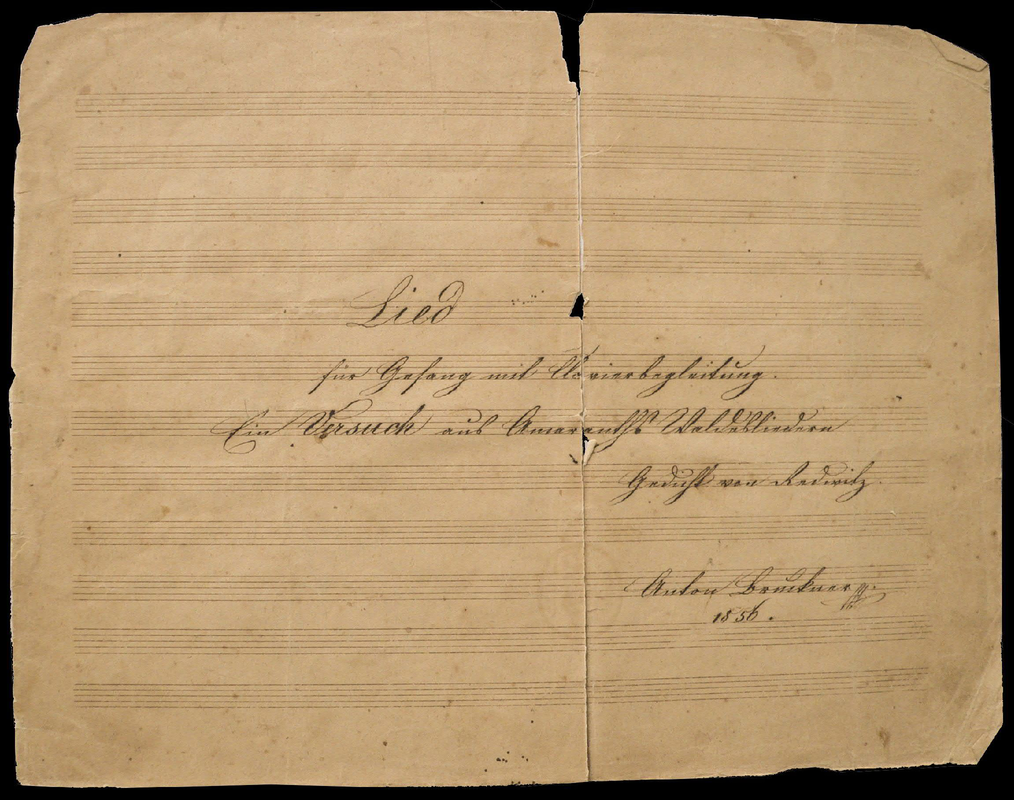 Lied
für Gesang mit Clavierbegleitung.
Ein Versuch aus Amaranths Waldesliedern
Gedicht von Redwitz.
Anton Bruckner
1856.